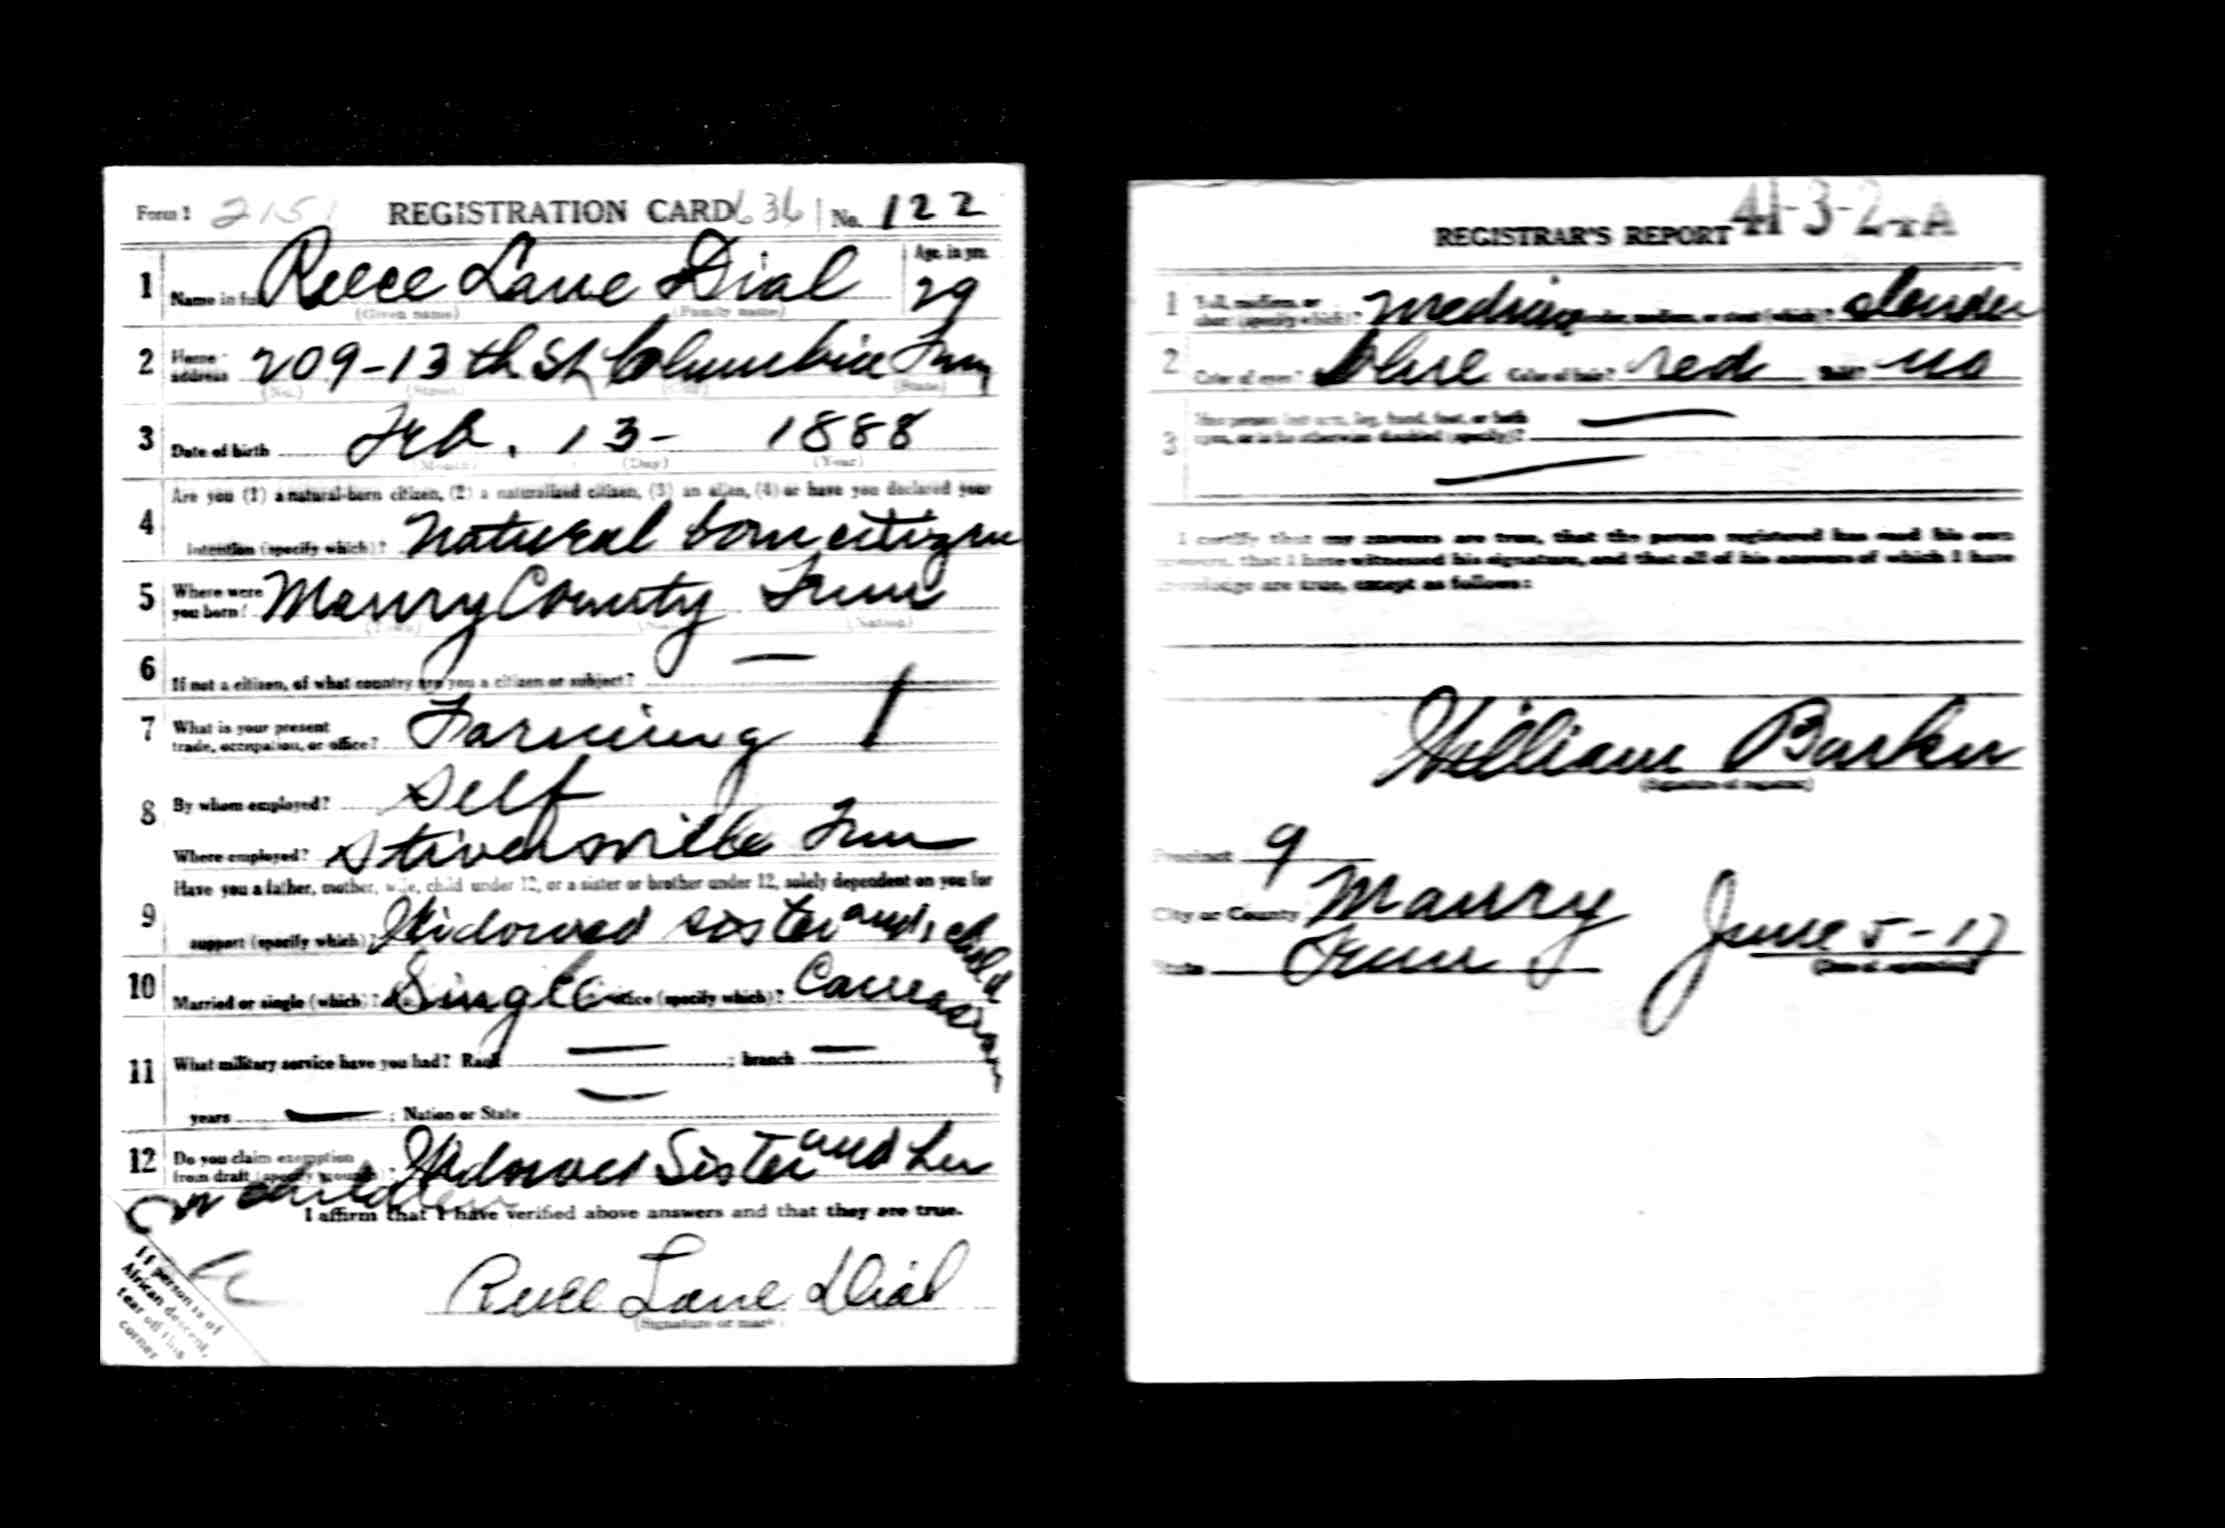 Form 1 2151 REGISTRATION CARD 636 No. 122
1 Name in full Reece Lane Dial Age, in yrs. 29
(Given name) (Family name)
2 Home address 209-13th St Columbia Tenn
(No.) (Street) (City) (State)
3 Date of birth Feb. 13- 1888
(Month) (Day) (Year)
4 Are you (1) a natural-born citizen, (2) a naturalized citizen, (3) an alien, (4) or have you declared your
intention (specify which)? Natural born citizen
5 Where were you born? Maury County Tenn
(Town) (State) (Nation)
6 If not a citizen, of what country are you a citizen or subject? —
7 What is your present trade, occupation, or office? Farming
8 By whom employed? Self
Where employed? Stiversville Tenn
9 Have you a father, mother, wife, child under 12, or a sister or brother under 12, solely dependent on you for
support (specify which)? Widowed sister and 1 child
10 Married or single (which)? Single Race (specify which)? Caucasian
11 What military service have you had? Rank — ; branch —
years — ; Nation or State —
12 Do you claim exemption from draft (specify grounds)? Widowed Sister and her
children
I affirm that I have verified above answers and that they are true.
Reece Lane Dial
(Signature or mark)
If person is of
African descent,
tear off this
corner
REGISTRAR'S REPORT 41-3-24 A
1 Tall, medium, or short (specify which)? Medium Slender, medium, or stout (which)? Slender
2 Color of eyes? Blue Color of hair? red Bald? no
3 Has person lost arm, leg, hand, foot, or both
eyes, or is he otherwise disabled (specify)? —
I certify that my answers are true, that the person registered has read his own
answers, that I have witnessed his signature, and that all of his answers of which I have
knowledge are true, except as follows:
William Barker
(Signature of registrar)
Precinct 9
City or County Maury
State Tenn June 5-17
(Date of registration)